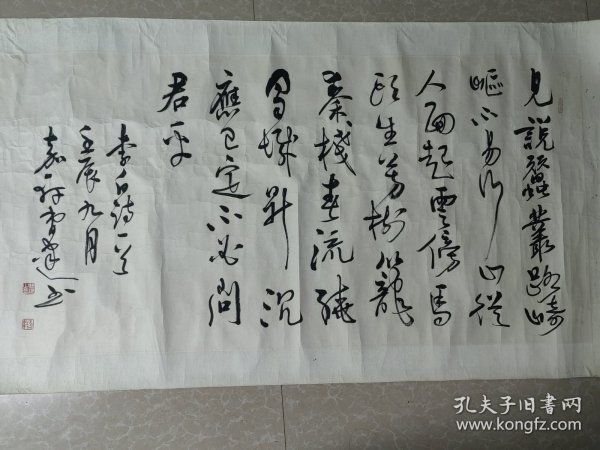 見說蠶叢路崎
嶇不易行山從
人面起雲傍馬
頭生芳樹籠
秦棧春流繞
蜀城升沉
應已定不必問
君平
李白詩一首
壬辰九月
書
孔夫子旧书网
www.kongfz.com